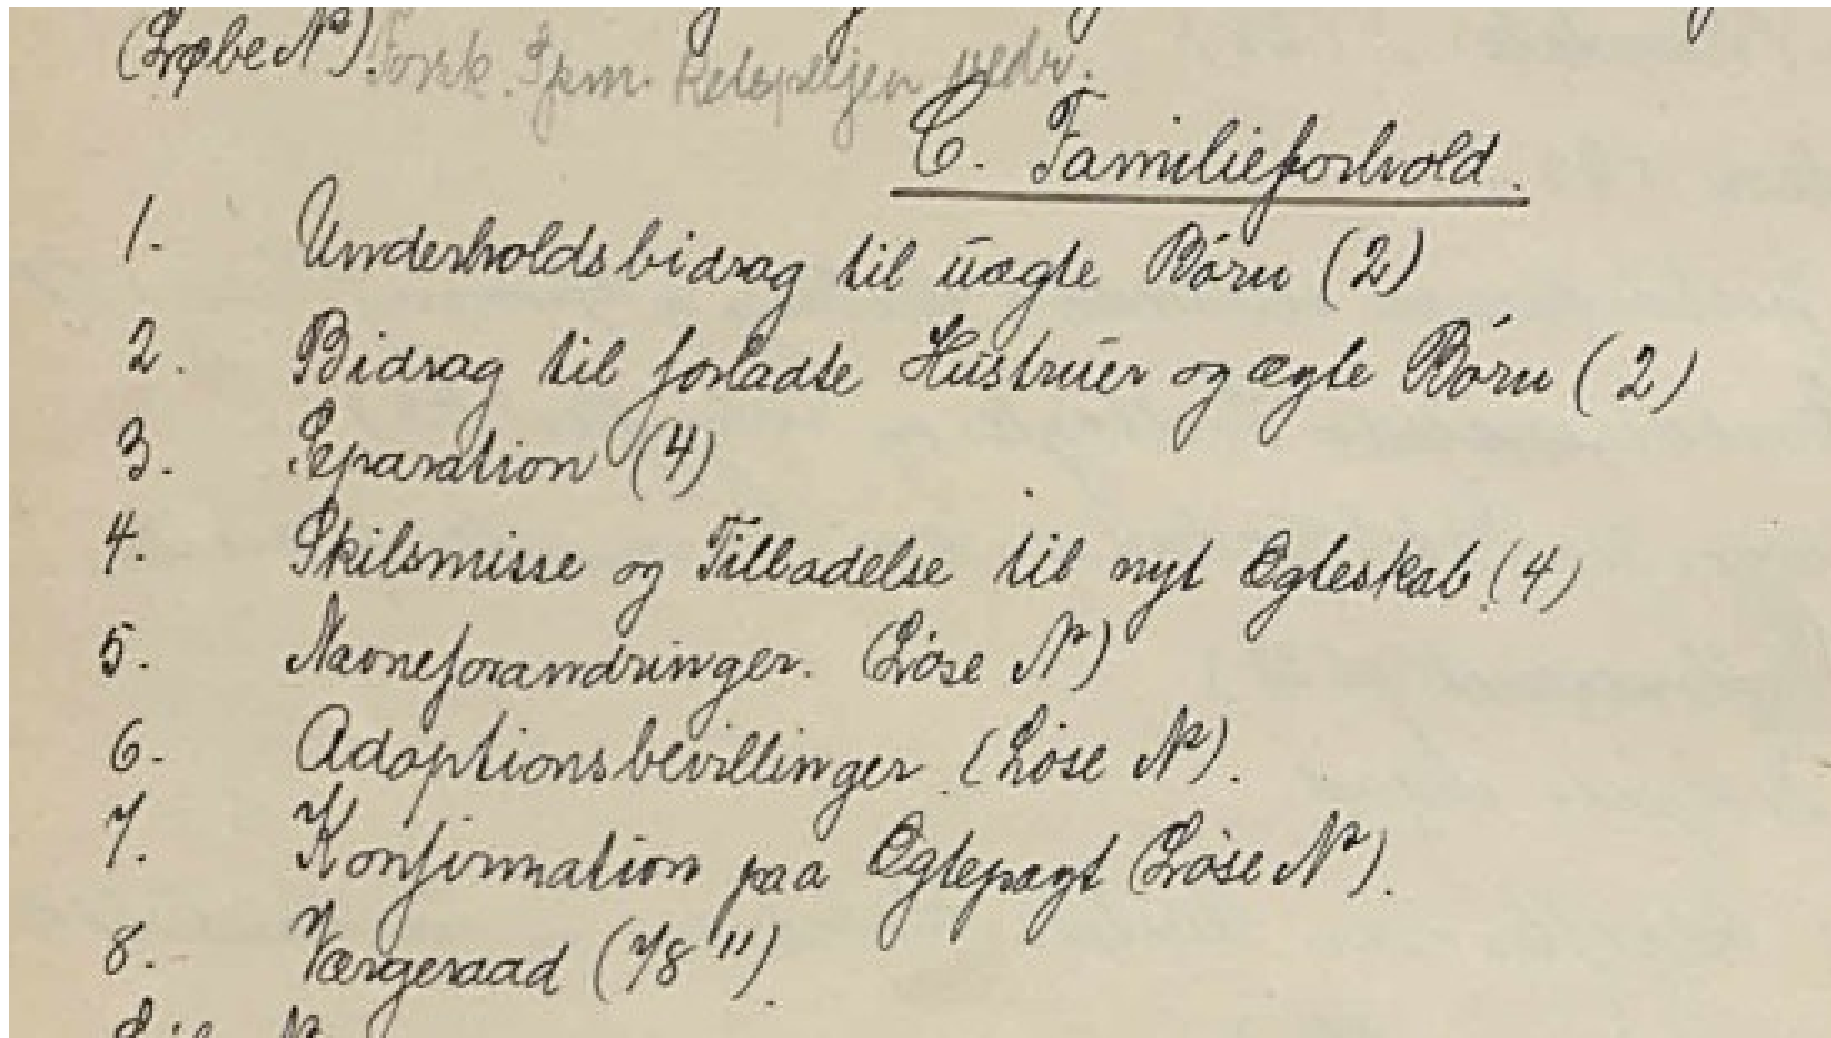 (Løbe №). Forsk. Spm. Retsplejen vedr.
C. Familieforhold.
1. Underholdsbidrag til uægte Børn (2)
2. Bidrag til forladte Hustruer og ægte Børn (2)
3. Separation (4)
4. Skilsmisse og Tilladelse til nyt Ægteskab (4)
5. Navneforandringer. (Løse №)
6. Adoptionsbevillinger (Løse №).
7. Konfirmation paa Ægtepagt (Løse №).
8. Værgeraad (7/8")